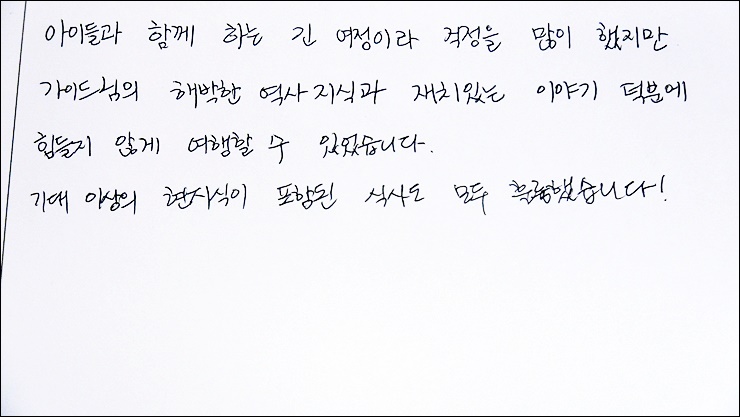 아이들과 함께 하는 긴 여정이라 걱정을 많이 했지만
가이드님의 해박한 역사 지식과 재치있는 이야기 덕분에
힘들지 않게 여행할 수 있었습니다.
기대 이상의 현지식이 포함된 식사도 모두 훌륭했습니다!